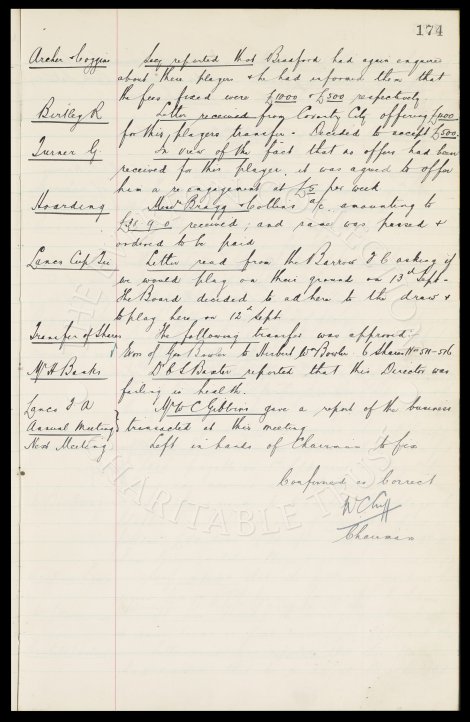 174
Archer & Coggins Secy reported that Bradford had again enquired
about these players & he had informed them that
the fees fixed were £1000 & £500 respectively
Birtley R Letter received from Coventry City offering £400
for this players transfer - Decided to accept £500.
Turner G In view of the fact that no offers had been
received for this player, it was agreed to offer
him a re engagement at £5 per week
Hoarding Messrs Bragg & Collins a/c amounting to
£31 9 0 received; and same was passed &
ordered to be paid
Lancs Cup Tie Letter read from the Barrow F C asking if
we would play on their ground on 13th Sept -
the Board decided to adhere to the draw &
to play here, on 12th Sept
Transfer of Shares The following transfer was approved:
Exors of Geo Bowler to Herbert W Bowler 6 Shares Nos 511-516
Mr H Banks Dr R S Baxter reported that this Director was
failing in health.
Lancs F A Mr W C Gibbins gave a report of the business
Annual Meeting transacted at this meeting
Next Meeting Left in hands of Chairman to fix
Confirmed as Correct
W. C. Cuff
Chairman
CHARITABLE TRUST